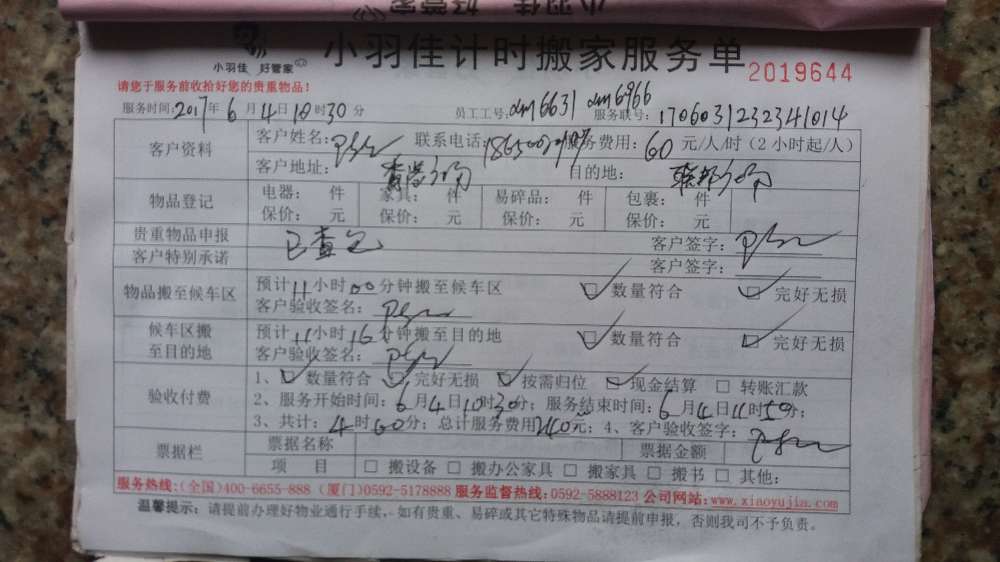 小羽佳 好管家
小羽佳计时搬家服务单
2019644
请您于服务前收拾好您的贵重物品!
服务时间:2017年6月4日10时30分 员工工号:xm6631 xm6966 服务联号:1706031232341014
客户资料 客户姓名: 联系电话: 服务费用:60元/人/时(2小时起/人)
客户地址: 目的地:
物品登记 电器: 件 家具: 件 易碎品: 件 包裹: 件
保价: 元 保价: 元 保价: 元 保价: 元
贵重物品申报 已查包 客户签字:
客户特别承诺 客户签字:
物品搬至候车区 预计11小时00分钟搬至候车区 ☑数量符合 ☑完好无损
客户验收签名:
候车区搬至目的地 预计11小时16分钟搬至目的地 ☑数量符合 ☑完好无损
客户验收签名:
验收付费 1、☑数量符合 ☑完好无损 ☑按需归位 ☑现金结算 □转账汇款
2、服务开始时间:6月4日10时30分;服务结束时间:6月4日11时50分;
3、共计:4时00分;总计服务费用240元;4、客户验收签字:
票据栏 票据名称 票据金额
项 目 □搬设备 □搬办公家具 □搬家具 □搬书 □其他:
服务热线:(全国)400-6655-888 (厦门)0592-5178888 服务监督热线:0592-5888123 公司网站:www.xiaoyujia.com
温馨提示:请提前办理好物业通行手续,如有贵重、易碎或其它特殊物品请提前申报,否则我司不予负责。